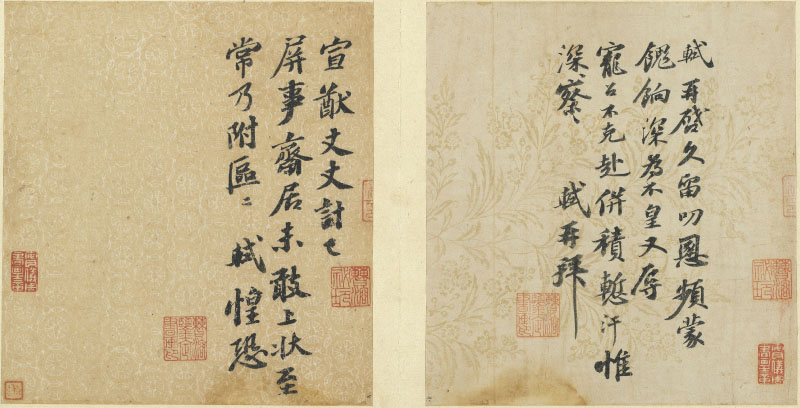 軾再啓久留叨恩頻蒙
餽餉深為不皇又辱
寵召不克赴併積慙汗惟
深〻察〻 軾再拜
宣猷丈丈計已
屏事齋居未敢上狀至
常乃附區〻 軾惶恐